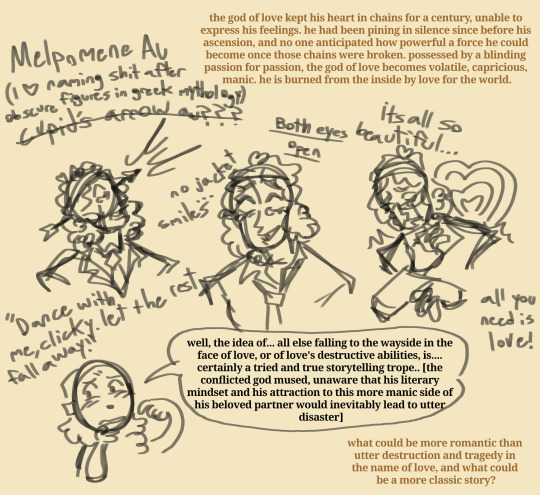 the god of love kept his heart in chains for a century, unable to
express his feelings. he had been pining in silence since before his
ascension, and no one anticipated how powerful a force he could
become once those chains were broken. possessed by a blinding
passion for passion, the god of love becomes volatile, capricious,
manic. he is burned from the inside by love for the world.
Melpomene AU
(I ♡ naming shit after
obscure figures in greek mythology)
cupid's arrow au???
no jacket
smiles...
Both eyes
open
its all so
beautiful...
"Dance with
me, clicky. let the rest
fall away!"
all you
need is
love!
well, the idea of... all else falling to the wayside in the
face of love, or of love's destructive abilities, is....
certainly a tried and true storytelling trope.. [the
conflicted god mused, unaware that his literary
mindset and his attraction to this more manic side of
his beloved partner would inevitably lead to utter
disaster]
what could be more romantic than
utter destruction and tragedy in
the name of love, and what could
be a more classic story?